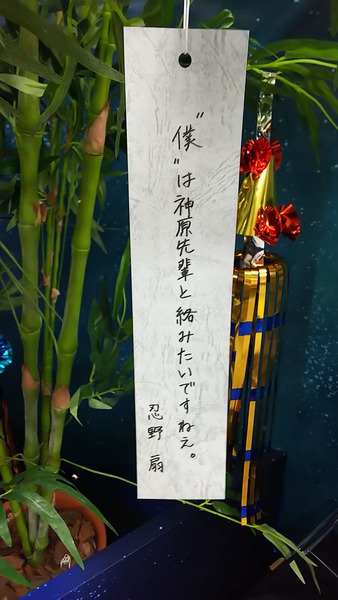 ”僕”は神原先輩と絡みたいですねえ。
忍野扇